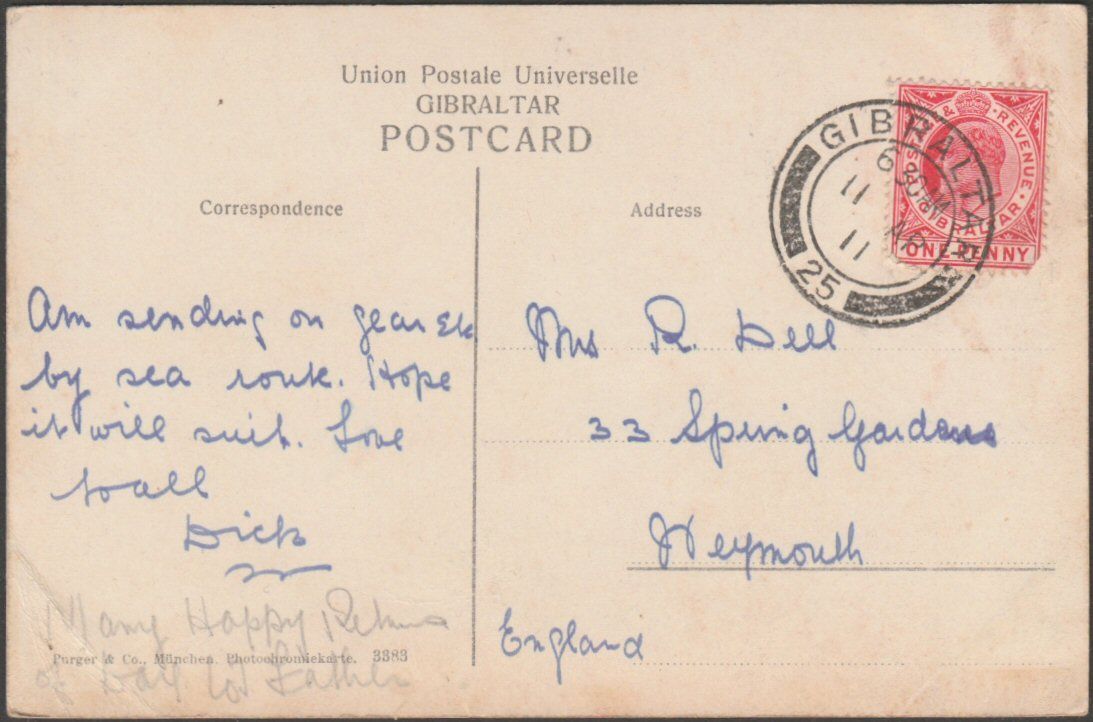 Union Postale Universelle
GIBRALTAR
POSTCARD
Correspondence
Address
POSTAGE & REVENUE
GIBRALTAR
ONE PENNY
GIBRALTAR
11
AP
11
25
Am sending on gear Etc
by sea route. Hope
it will suit. Love
to all
Dick
Many Happy Returns
of Day to Father
Purger & Co., München. Photochromiekarte. 3383
Mrs R. Dell
33 Spring Gardens
Weymouth
England